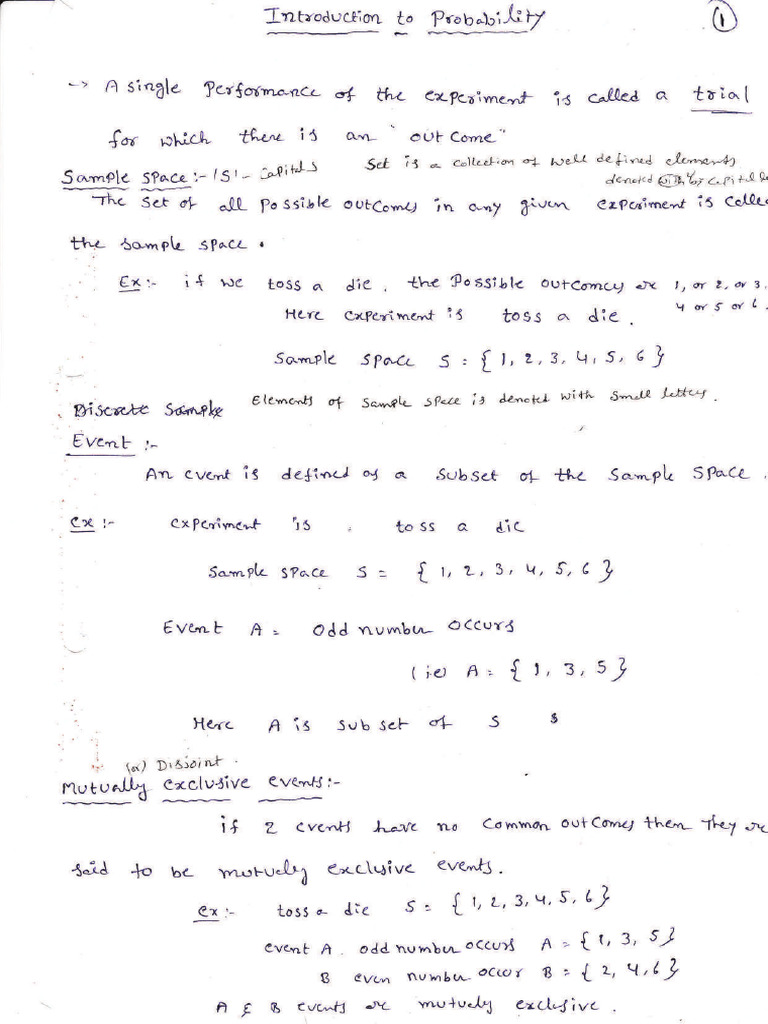 Introduction to Probability
1
-> A single Performance of the experiment is called a trial
for which there is an "out come"
Sample space:- 'S' - Capital S Set is a collection of well defined elements
denoted with by capital
The set of all possible outcomes in any given experiment is called
the sample space.
Ex:- if we toss a die, the Possible outcomes are 1, or 2, or 3.
4 or 5 or 6.
Here experiment is toss a die.
Sample space S = { 1, 2, 3, 4, 5, 6 }
Discrete Sample Elements of sample space is denoted with small letters.
Event :-
An event is defined as a subset of the sample space.
ex :- experiment is toss a die
Sample space S = { 1, 2, 3, 4, 5, 6 }
Event A = odd number occurs
(ie) A = { 1, 3, 5 }
Here A is subset of S s
(or) Disjoint.
Mutually exclusive events:-
if 2 events have no common outcomes them They are
said to be mutuely exclusive events.
ex:- toss a die S = { 1, 2, 3, 4, 5, 6 }
event A. odd number occurs A = { 1, 3, 5 }
B even number occur B = { 2, 4, 6 }
A & B events are mutuely exclusive.